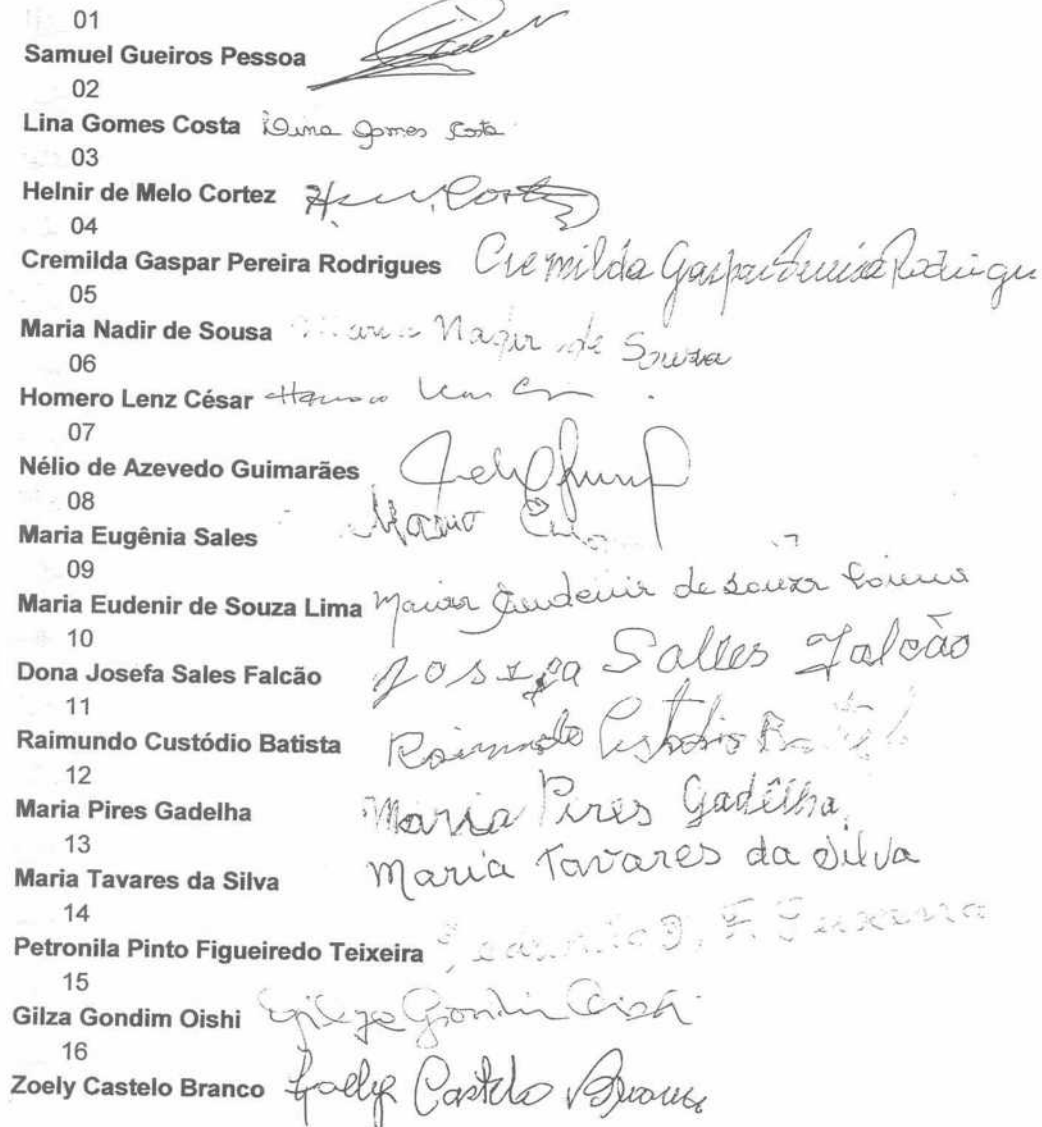 01
Samuel Gueiros Pessoa
02
Lina Gomes Costa Lina Gomes Costa
03
Helnir de Melo Cortez Cortez
04
Cremilda Gaspar Pereira Rodrigues Cremilda Gaspar Pereira Rodrigu
05
Maria Nadir de Sousa Maria Nadir de Souza
06
Homero Lenz César
07
Nélio de Azevedo Guimarães
08
Maria Eugênia Sales Maria
09
Maria Eudenir de Souza Lima Maria Eudenir de Souza
10
Dona Josefa Sales Falcão Josefa Salles Falcão
11
Raimundo Custódio Batista Raimundo Custodio Batista
12
Maria Pires Gadelha Maria Pires Gadêlha
13
Maria Tavares da Silva Maria Tavares da Silva
14
Petronila Pinto Figueiredo Teixeira F. Teixeira
15
Gilza Gondim Oishi Gilza Gondim Oishi
16
Zoely Castelo Branco Zoely Castelo Branco